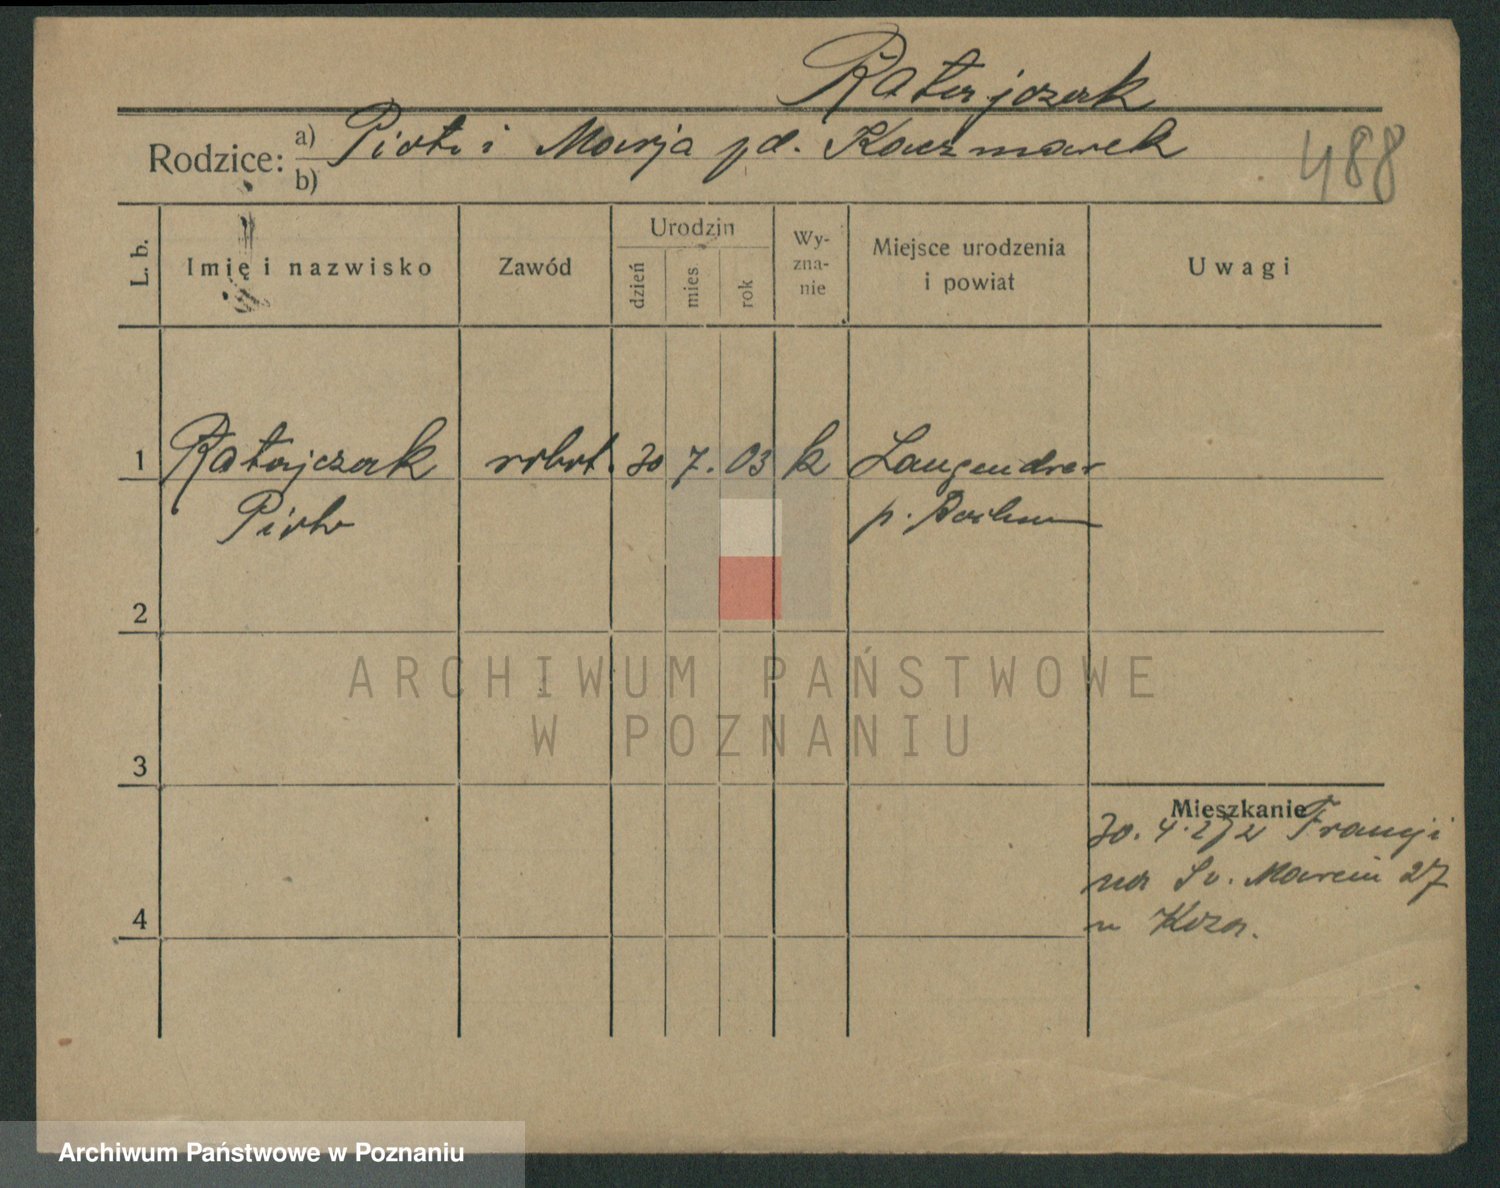 Ratajczak
Rodzice: a) Piotr i Marja pd. Kaczmarek
b)
488
L. b.
Imię i nazwisko
Zawód
Urodzin
dzień
mies.
rok
Wy-
zna-
nie
Miejsce urodzenia
i powiat
Uwagi
1 Ratajczak robot. 30 7. 03 k Langendreer
Piotr p. Bochum
2
3
4
Mieszkanie
30. 4. Francji
na Św. Marcin 27
ARCHIWUM PAŃSTWOWE
W POZNANIU
Archiwum Państwowe w Poznaniu